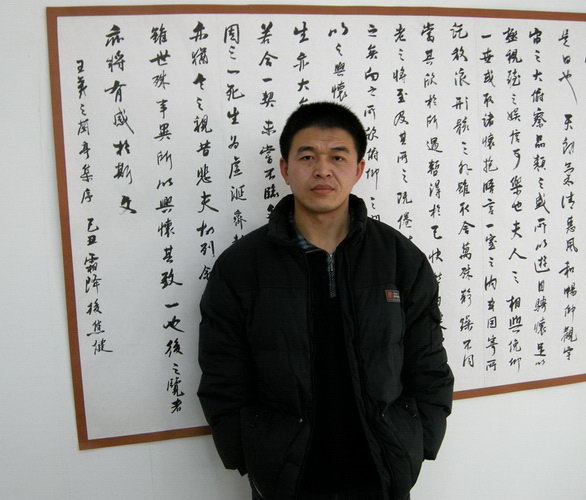 是日也天朗氣清惠風和暢仰觀宇
宙之大俯察品類之盛所以遊目騁懷足以
極視聽之娛信可樂也夫人之相與俯仰
一世或取諸懷抱晤言一室之內或因寄所
託放浪形骸之外雖取舍萬殊靜躁不同
當其欣於所遇暫得於己快
老之將至及其所之既倦
之矣向之所欣俯仰之間
以之興懷
生亦大
若合一契未嘗不臨
固知一死生為虛誕齊
亦猶今之視昔悲夫故列
雖世殊事異所以興懷其致一也後之覽者
亦將有感於斯文
王羲之蘭亭集序 己丑霜降後焦健